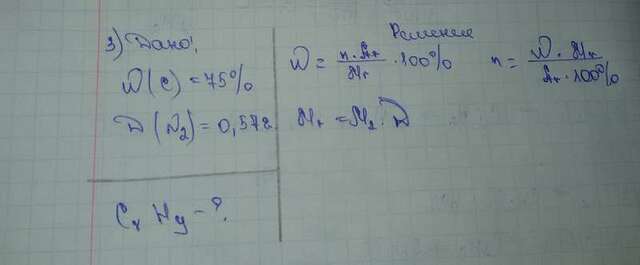 3) Дано:
W(C) = 75%
D(N₂) = 0,572
CₓHy - ?
Решение
W = n·Ar / Mr · 100% n = W·Mr / Ar·100%
Mr = M₂·D